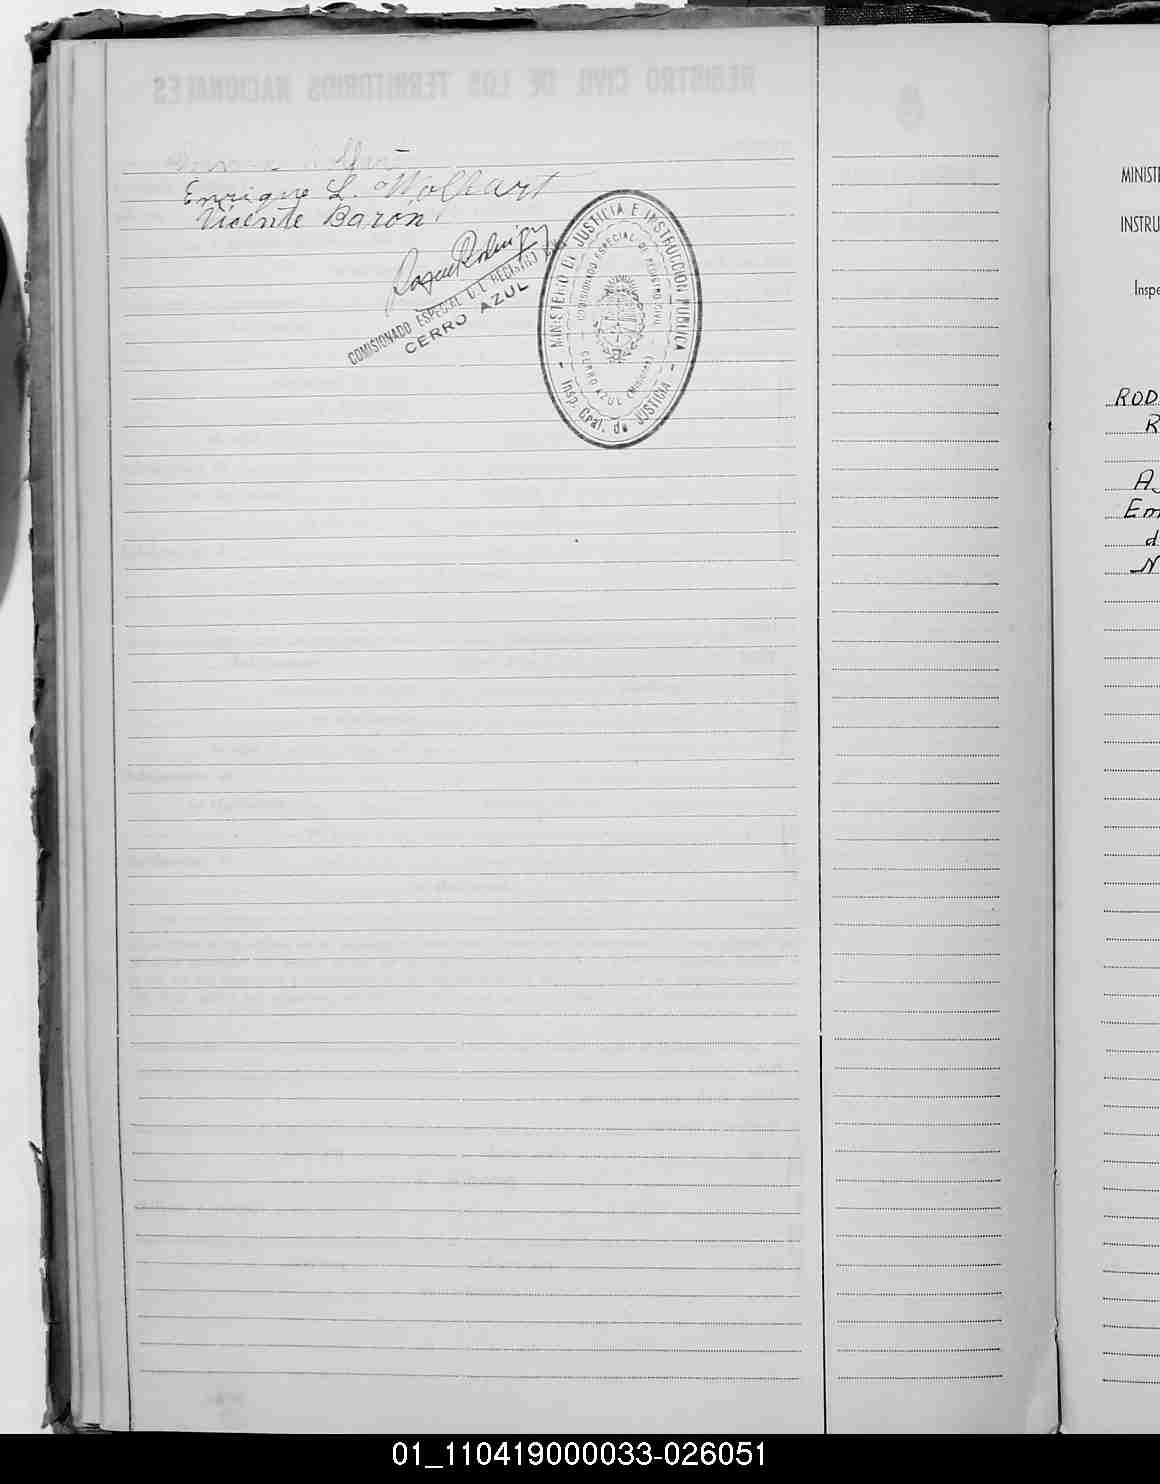 Enrique L. Wolhart
Vicente Baron
Roque Rodriguez
COMISIONADO ESPECIAL DEL REGISTRO
CERRO AZUL
MINISTERIO DE JUSTICIA E INSTRUCCION PUBLICA
Insp. Gral. de JUSTICIA
COMISIONADO ESPECIAL DE REGISTRO CIVIL
CERRO AZUL (Misiones)
REGISTRO CIVIL DE LOS TERRITORIOS NACIONALES
MINISTE
INSTRU
Inspe
ROD
R
A
Em
d
N
01_110419000033-026051